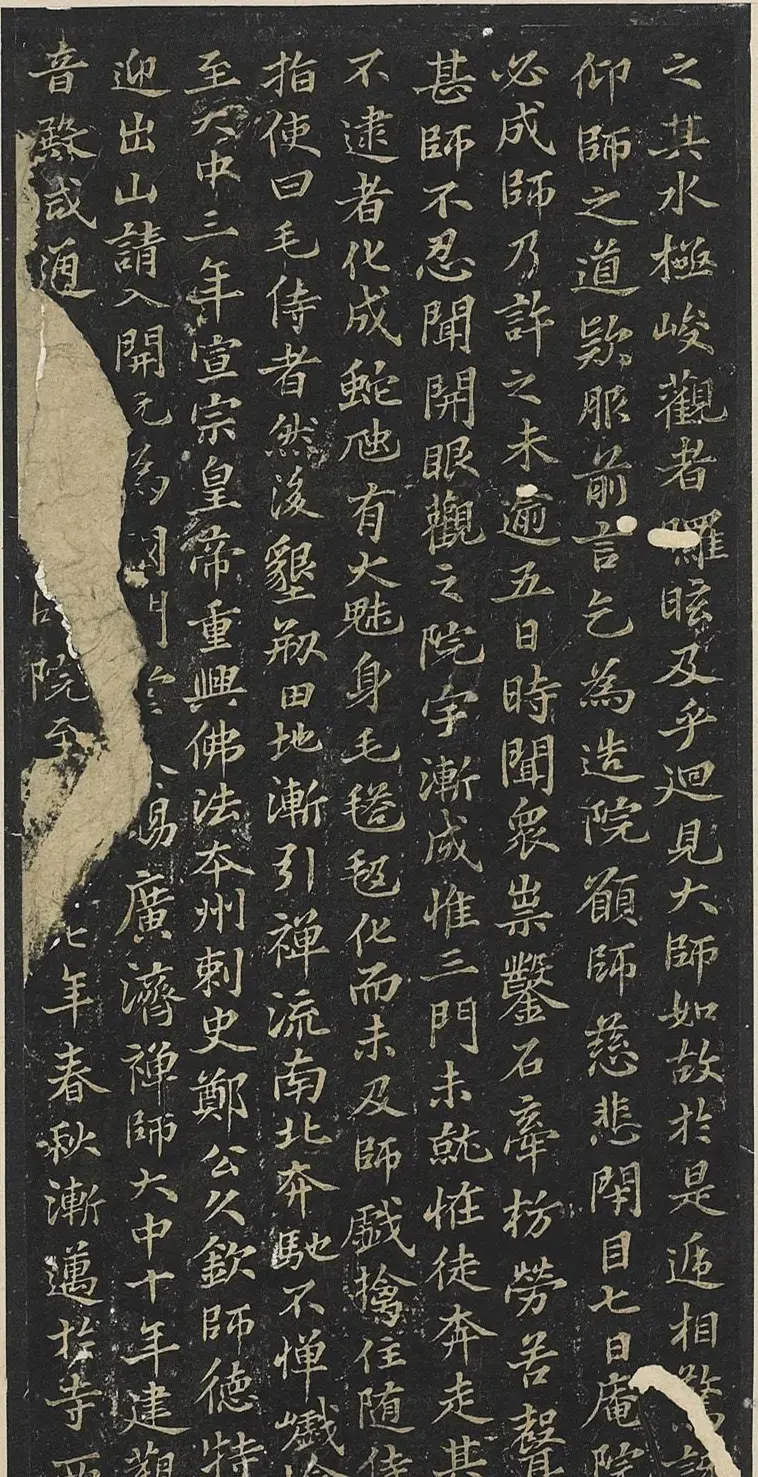 之其水極峻觀者曜眩及乎迴見大師如故於是遞相驚訝
仰師之道歎服前言乞為造院願師慈悲閉目七日庵院
必成師乃許之未逾五日時聞衆祟鑿石牽枋勞苦聲
甚師不忍聞開眼觀之院宇漸成惟三門未就怪徒奔走其
不逮者化成蛇虺有大魅身毛毿毿化而未及師戲擒住随侍
指使曰毛侍者然後墾剏田地漸引禪流南北奔馳不憚巇嶮
至大中三年宣宗皇帝重興佛法本州刺史鄭公久欽師德特
迎出山請入開元為 賜廣濟禪師大中十年建觀
音殿咸通 院至 七年春秋漸邁於寺西